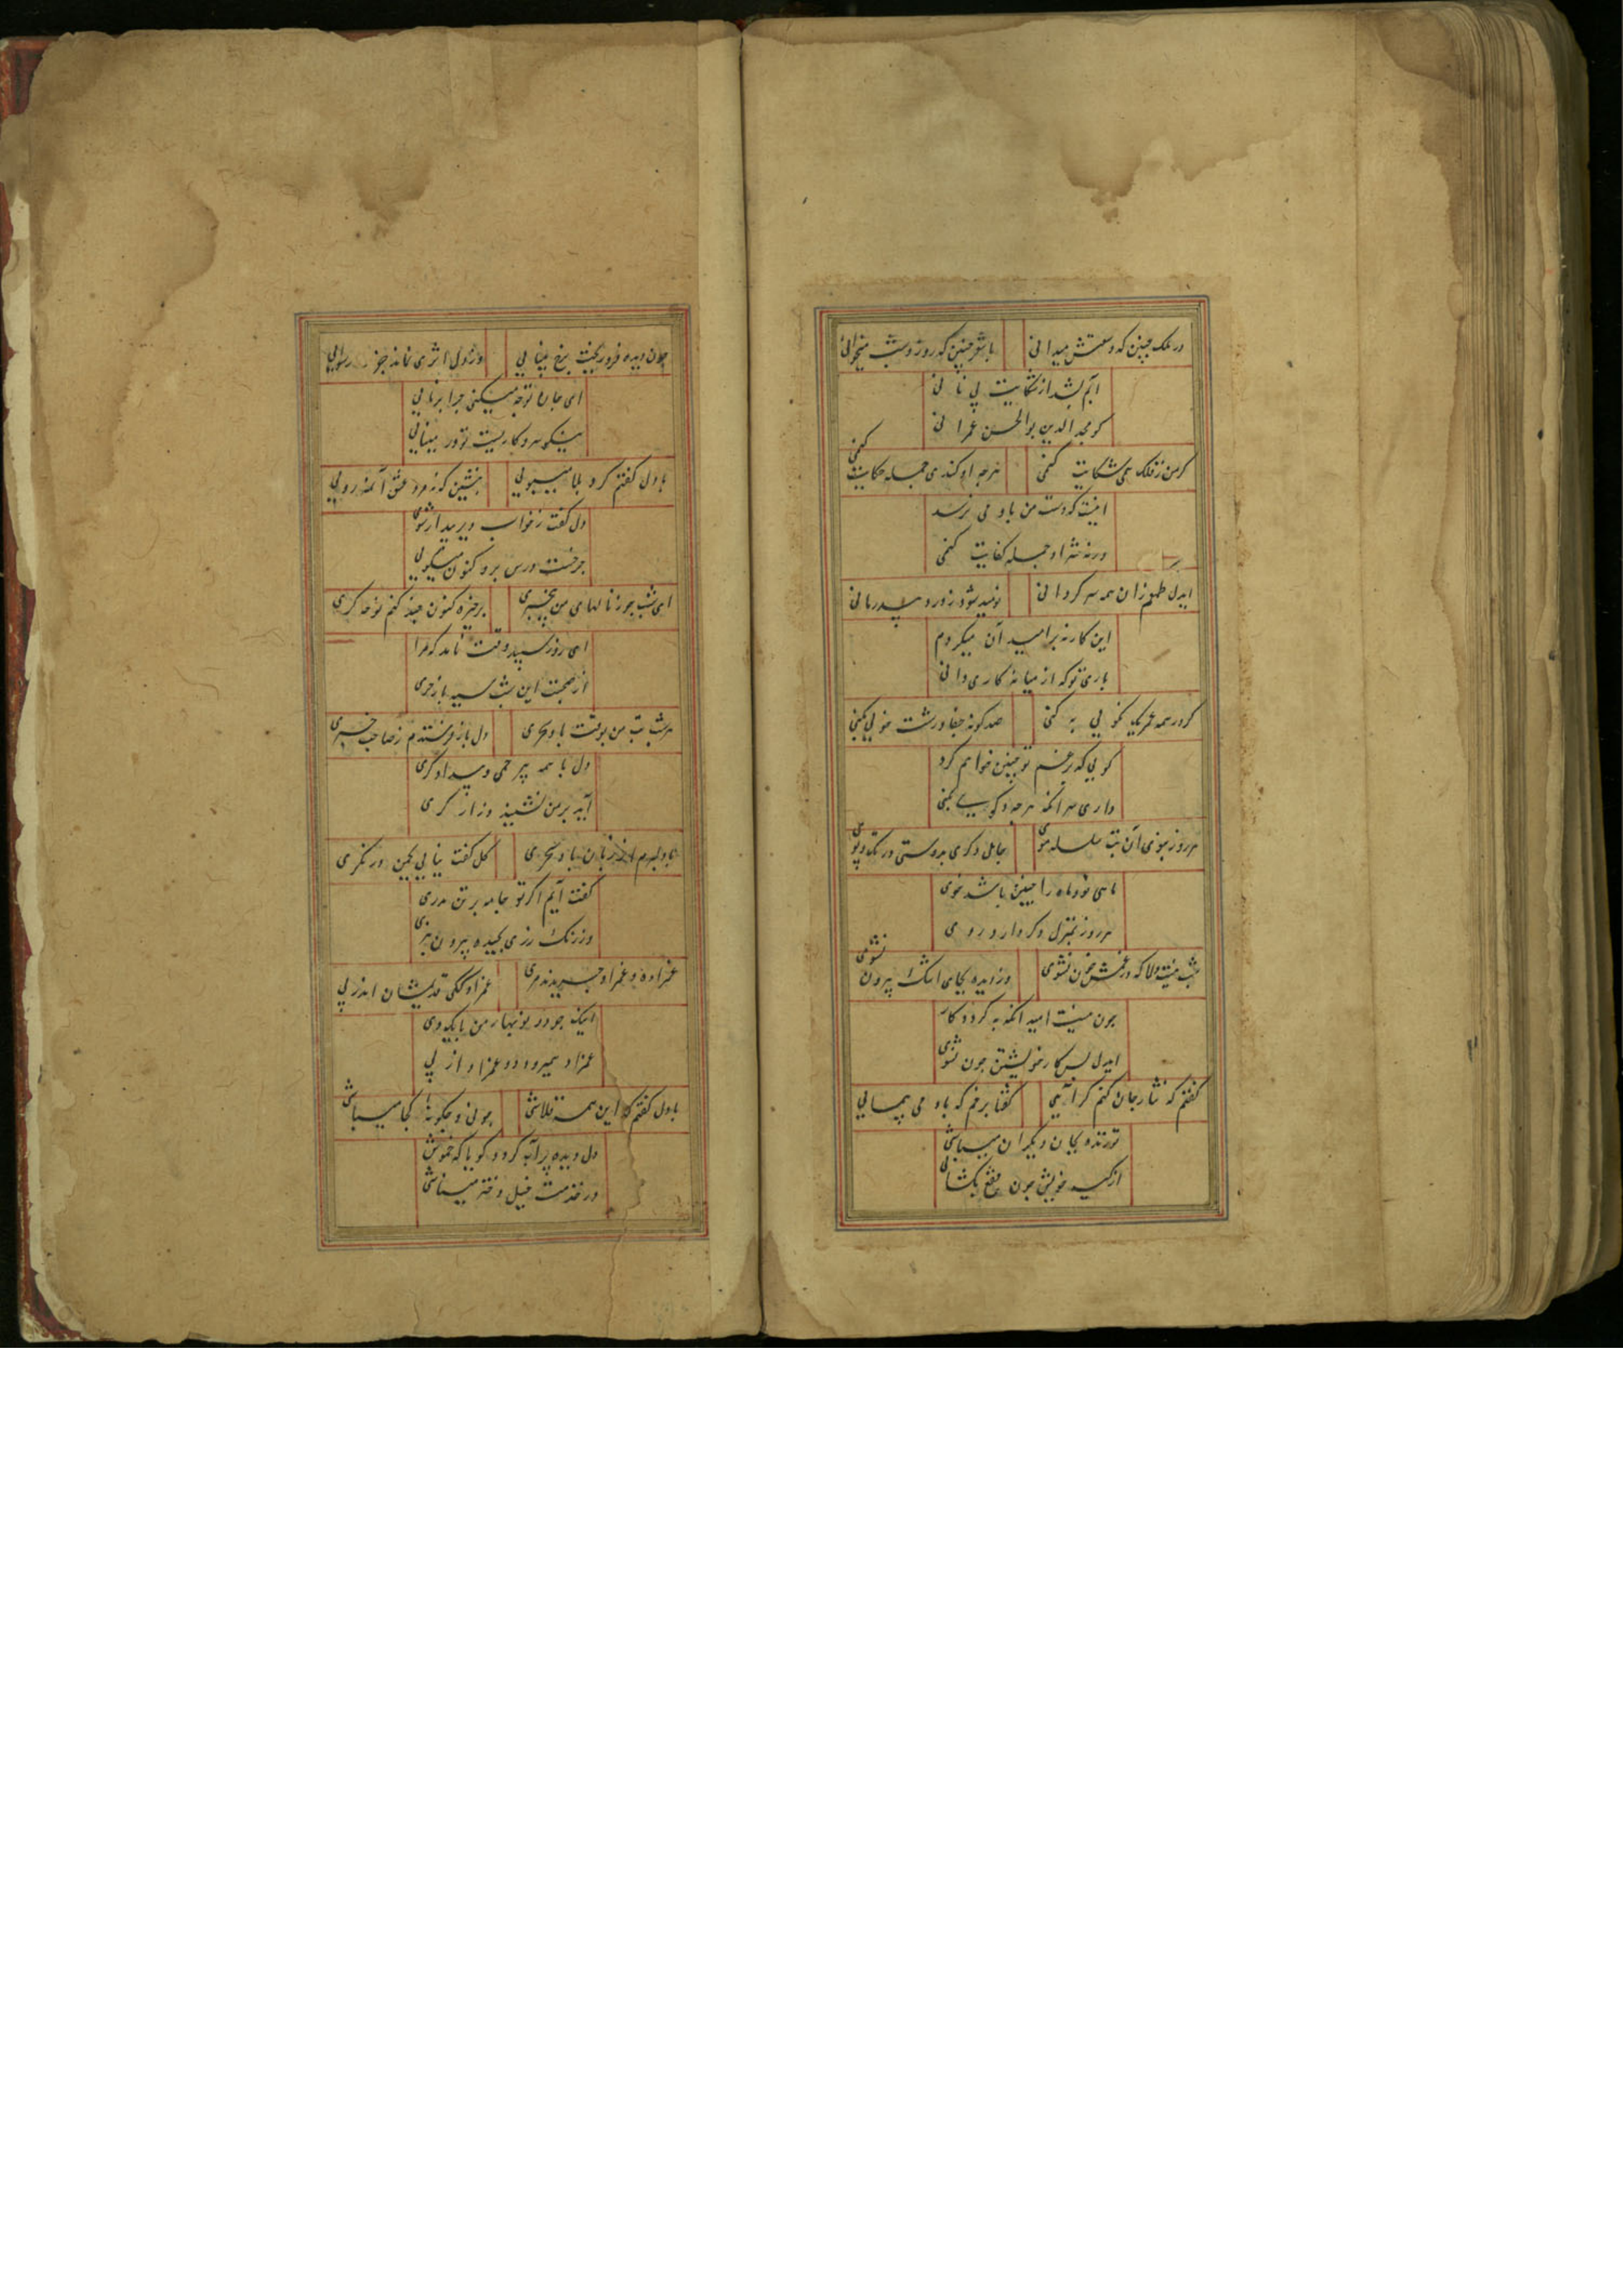 در ملک چنین که وسعتش میدانی
با شعر چنین که روز و شب میخوانی
آبم بشد از شکایت بی نانی
کو مجد الدین بوالحسن عمرانی
گر من ز فلک همی شکایت کنمی
هرچه او کندی جمله حکایت کنمی
اینست که دست من باو می نرسد
ورنه شر او جمله کفایت کنمی
ایدل طمعم زان همه سرگردانی
نومید شود ز درد بی درمانی
این کار نه بر امید آن میکردم
باری تو که از میانه کاری دانی
گر در همه عمر یک نکویی به کنی
صد گونه جفا و زشت خویی بکنی
گویی که برغم تو چنین خواهم کرد
داری سر آنکه هرچه گویی بکنی
هر روز بنوی آن بت سلسله موی
جایی دگری بدوستی در تک و پوی
ماهی نو و ماه را چنین باشد خوی
هر روز بمنزل دگر دارد روی
شب نیست دلا که در غمش خون نشوی
وز دیده بجای اشک بیرون نشوی
چون نیست امید آنکه به گردد کار
ایدل پس کار خویشتن چون نشوی
گفتم که نثار جان کنم گر آیی
گفتا برخم که باد می پیمایی
تو زنده بجان دیگران میباشی
از کیسه خویش چون فقع بگشایی
چون دیده فرو ریخت برخ بینایی
وز دل اثری نماند جز رسوایی
ای جان تو چه میکنی چرا برنایی
نیکو سر و کاریست تو در مینایی
با دل گفتم گرد بلا میپویی
بنشین که نه مرد عشق آن مه رویی
دل گفت ز خواب دیر بیدار شوی
خر جست و رسن برد کنون میگویی
ای شب چو ز نالهای من بی خبری
برخیزه کنون چند کنم نوحه گری
ای روز سپید وقت نامد که مرا
از صحبت این شب سیه باز خری
هر شب بت من بوقت باد سحری
دل باز فرستدم ز صاحب خبری
دل با همه بی رحمی و بیدادگری
آید بر من نشیند و زار گری
با دلبرم از زبان باد سحری
گل گفت نیایی بچمن درنگری
گفت آیم اگر تو جامه بر تن بدری
وز رنگ رزی بجیده بیرون نبری
عمزاد همیرود دو عمزاد از پی
با دل گفتم که این همه قلاشی
چونی و چگونه کجا میباشی
دل دیده پر آب کرد و گویا که خموش
در خدمت فیل دختر میباشی